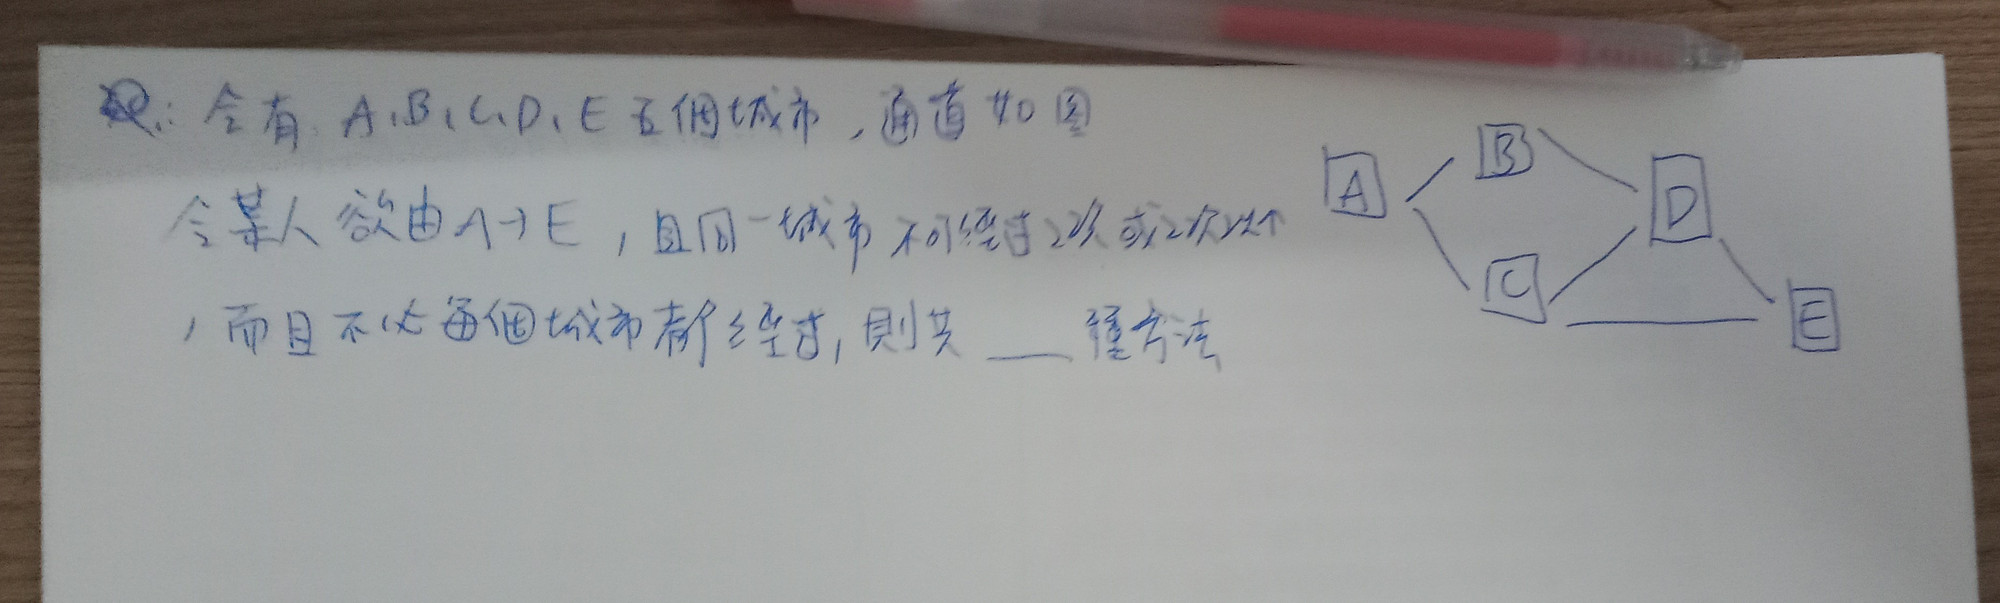 Q: 令有 A、B、C、D、E 五個城市，通道如圖
令某人欲由A→E，且同一城市不可經过2次或2次以上
，而且不必每個城市都經过，則共 ___ 種方法
A
B
C
D
E